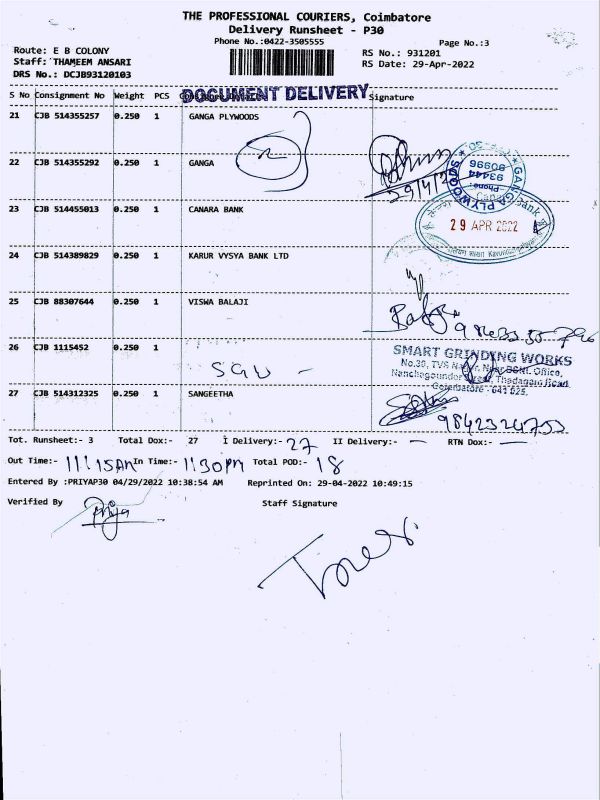 THE PROFESSIONAL COURIERS, Coimbatore
Delivery Runsheet - P30
Phone No.:0422-3505555
Page No.:3
Route: E B COLONY
RS No.: 931201
Staff: THAMEEM ANSARI
RS Date: 29-Apr-2022
DRS No.: DCJB93120103
DOCUMENT DELIVERY
S No Consignment No Weight PCS Signature
21 CJB 514355257 0.250 1 GANGA PLYWOODS
22 CJB 514355292 0.250 1 GANGA
29/4/2
GANGA PLYWOODS
Phone:
93444
90996
23 CJB 514455013 0.250 1 CANARA BANK
29 APR 2022
24 CJB 514389829 0.250 1 KARUR VYSYA BANK LTD
25 CJB 88307644 0.250 1 VISWA BALAJI
26 CJB 1115452 0.250 1
SGW -
SMART GRINDING WORKS
No.39, TVS Nagar, Near BSNL Office,
Nanchagounder Street, Thadagam Road
Coimbatore - 641 025.
27 CJB 514312325 0.250 1 SANGEETHA
9842324753
Tot. Runsheet:- 3 Total Dox:- 27 I Delivery:- 27 II Delivery:- — RTN Dox:- —
Out Time:- 11:15AM In Time:- 1:30PM Total POD:- 18
Entered By :PRIYAP30 04/29/2022 10:38:54 AM Reprinted On: 29-04-2022 10:49:15
Verified By Priya Staff Signature